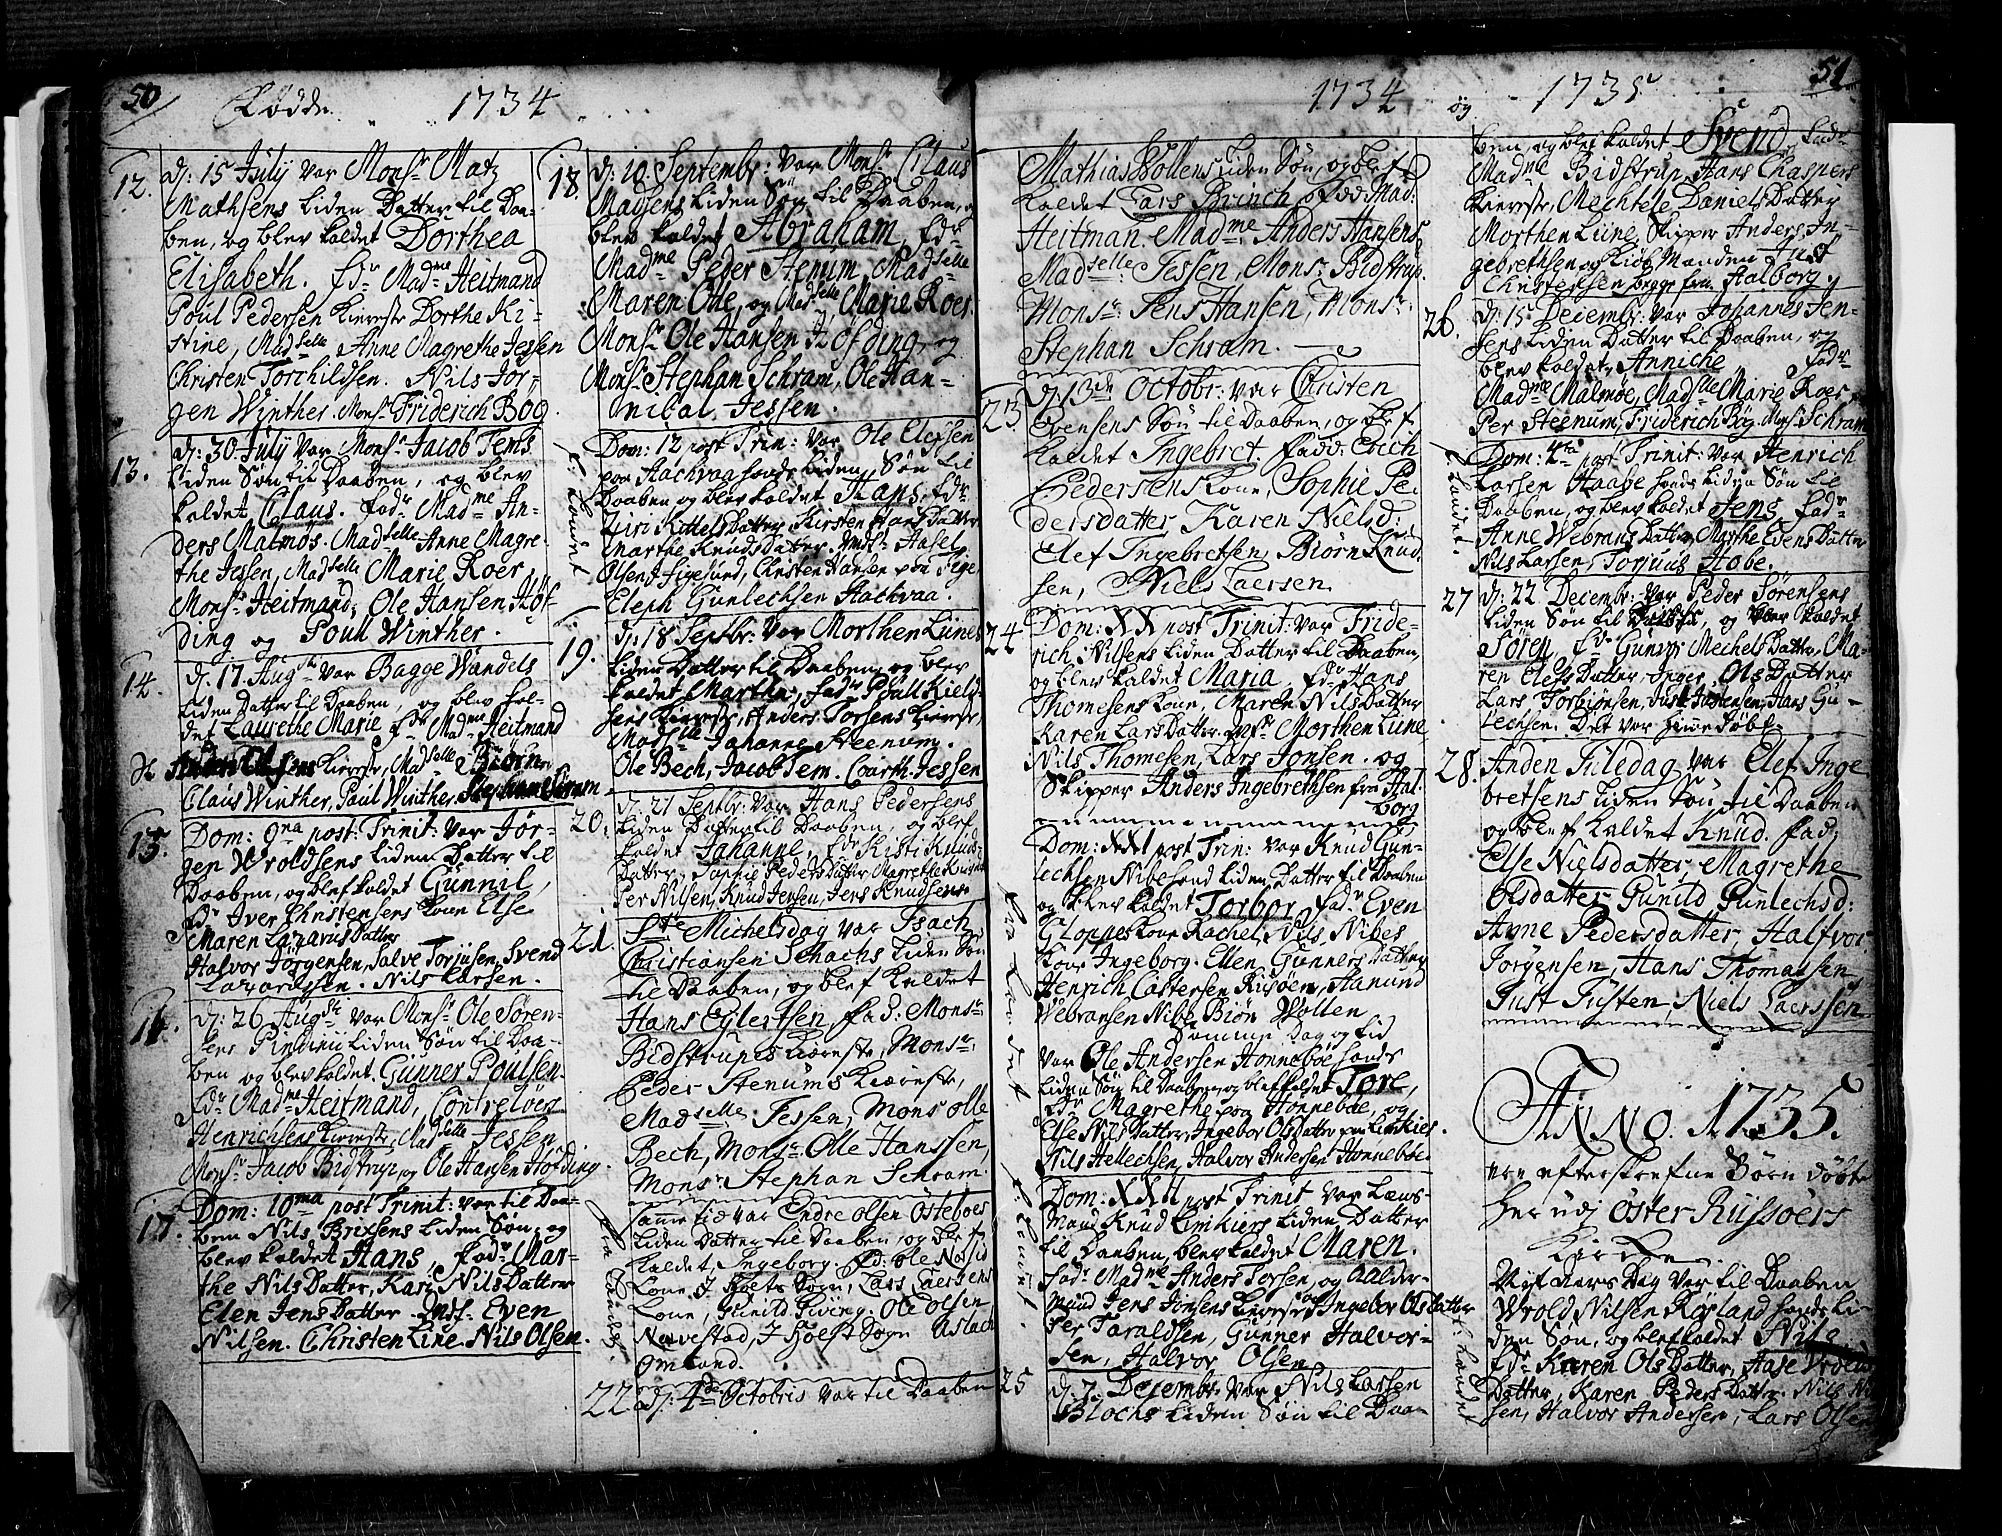 50
Fødde 1734
12. d: 15 July var Mons.r Matz
Mathsens liden Datter til Daa-
ben, og blev kaldet Dorthea
Elisabeth. fd.r Mad.me Heitmand
Poul Pedersen Kiereste Dorthe Ki-
stine, Mad.selle Anne Magrethe Jessen
Christen Torchildsen. Nils Jör-
gen Winther. Mons.r Friderich Bog
13. d: 30 July var Mons.r Jacob Tems
liden Søn til Daaben, og blev
kaldet Claus. fad.r Mad.me An-
ders Malmös. Mad.selle Anne Magre-
the Jessen, Mad.selle Marie Roer,
Mons.r Heitmand, Ole Hansen Höf-
ding og Poull Winther.
14. d: 17. Aug.sti var Bagge Wandels
liden Datter til Daaben, og blev kal-
det Laurethe Marie fd.r Mad.me Heitmand
Kiereste, Mad.selle Biörn
Claus Winther, Paul Winther, Stephan Schram
15. Dom: 9.na post: Trinit: var Jör-
gen Wroldsens liden Datter til
Daaben, og blef kaldet Gunnil,
fd.r Iver Christensens Kone Else
Maren Lazarus Datter
Halvor Jörgensen, Salve Torjusen, Svend
Lazarussen. Nils Larsen.
16. d: 26 Aug.sti var Mons.r Ole Sören-
sens liden Søn til Daa-
ben og blev kaldet. Gunner Poulsen.
fd.r Mad.me Heitmand, Contreløer
Henrichsens Kiereste, Mad.selle Jessen,
Mons.r Jacob Bidstrup, og Ole Hansen Höfding.
17. Dom: 10.ma post Trinit: var til Daa-
ben Nils Brixsens liden Søn, og
blev kaldet Hans, fad.r Mar-
the Nils Datter, Kari Nils Datter
Elen Jens Datter. Even
Nilsen. Christen Line. Nils Olsen.
18. d: 10 Septembr: var Mons.r Claus
Madsens liden Søn til Daaben, og
blev kaldet Abraham, fd.r
Mad.me Peder Stenum, Mad.selle
Maren Ode, og Mad.selle Marie Roer.
Mons.r Ole Hansen Höfding, og
Mons.r Stephan Schram, Ole Han-
nibal Jessen.
Dom: 12 post Trin: var Ole Elefsen
paa liden Søn til
Daaben og blev kaldet Hans, fd.r
Kittels Datter, Kirsten Hans Datter
Marthe Knuds Datter. Aasel
Olsen Figesund, Christen Hansen paa Fige
Eleph Gunlechsen Halvvaa.
19. d: 18 Septbr: var Morthen Lunes
liden Datter til Daaben, og blev
kaldet Marthe, fad.r Poull Kield-
sens Kiereste, Anders Torsens Kiereste,
Mad.selle Johanne Steenum.
Ole Bech, Jacob Tem. Coarth. Jessen
20. d: 21 Septbr: var Hans Pedersens
liden Datter til Daaben, og blef
kaldet Johanne, fd.r Kisti Knuds-
Datter, Sophie Peders Datter, Magrethe
Per Nilsen, Knud Jensen, Jens Knudsens
21. S.te Michelsdag var Isach
Christiansen Schachs liden Søn
til Daaben, og blef Kaldet
Hans Eylertsen fad: Mons.r
Bidstrupes Kiereste, Mons.r
Peder Stenums Kiereste,
Mad.selle Jessen, Mons olle
Bech, Mons.r Olle Hanssen,
Mons.r Stephan Schram.
Samme tid var Endre olsen Österboes
liden Datter til Daaben, og blef
kaldet, Ingeborg. fd: ole
Kone, J Holts Sogn, Lars Laersens
Kone, Gunild Ole olsen
Navestad, J Holt Sogn Aslach
Omland.
22 d: 4.de Octobris var til Daaben
51
1734 og 1735
Mathias Bollens liden Søn, og blef
kaldet Lars Brinch, fad: Mad:
Heitman. Mad.me Anders Hansens
Mad.selle Jessen, Mons.r Bidstrup.
Mons.r Jens Hansen, Mons.r
Stephan Schram.
23. d: 13.de octobr: var Christen
Evensens Søn til Daaben, og blef
kaldet Ingebret. fadd: Erich
Pedersens Kone, Sophie Pe-
dersdatter Karen Nielsd:
Elef Ingebretsen, Biørn Knud-
sen, Niels Laersen
24 Dom: XX post Trinit: var Fride-
rich Nilsens liden Datter til Daaben,
og blev kaldet Maria, fd.r Hans
Thomesens Kone, Maren Nils Datter
Karen Lars Datter. Morthen Lune
Nils Thomesen, Lars Jonsen. og
Skipper Anders Ingebrethsen fra Aal-
borg
Dom: XXI post Trin: var Knud Gun-
lechsen Nibes liden Datter til Daaben
og blev kaldet Torbor, fad.r Even
Gloppes Kone Rachel, Nils Nibes
Kone Ingeborg. Ellen Gunners Datter
Henrich Castersen Risöen, Hamund
Webransen Nibe, Biørn Wollen
Samme Dag og tid
var Ole Andersen Honneboe
liden Søn til Daaben og blef kaldet Tore,
fd.r Magrethe paa Honneboe, og
Else Nils Datter, Ingebor Ols Datter paa Limkier.
Nils Hellechsen, Halvor Andersen Honneboe
Dom: XXII post Trinit var Læns-
mand Knud Limkiers liden Datter
til Daaben, blev kaldet Maren.
fad.r Mad.me Anders Torsen, og Aalder-
mand Jens Jonsens Kiereste og Ingebor Ols Datter
Per Taraldsen, Gunner Halvor-
sen, Halvor Olsen
25 d: 7. Decembr: var Nils Larsen
Blochs liden Søn til Daa-
ben, og blef kaldet Svend, fad.r
Mad.me Bidstrup, Hans Chaspers
Kiereste, Mechtele Daniels Datter
Morthen Lune, Skipper Anders In-
gebrethsen og Kiöbmanden Just
Christensen begge fra Aalborg.
26. d: 15 Decembr: var Johannes Jen-
sens liden Datter til Daaben, og
blev kaldet, Anniche fad.r
Mad.me Malmöe, Mad.selle Marie Roer
Per Steenum, Friderich Bög, Mons.r Schram
Dom: 4.ta post Trinit: var Henrich
Larsen Haabe liden Søn til
Daaben, og blev kaldet Jens fad.r
Anne Webrans Datter, Marthe Evens Datter
Nils Larsen, Torjuus Hobe.
27 d: 22 Decembr: var Peder Sörensens
liden Søn til Daaben, og blev kaldet
Sören, fd.r Gunvor Mechels Datter, Ma-
ren Elefs Datter, Inger Ols Datter
Lars Torbiönsen, Just Justensen, Hans Gu-
lechsen. Det var hjemme døbt.
28. Anden Juledag var Elef Inge-
bretsens liden Søn til Daaben
og blef kaldet Knud. fad:
Else Nielsdatter, Magrethe
Olsdatter Gunild Gunlechsd:
Anne Pedersdatter, Halfvor
Jörgensen, Hans Thomassen,
Just Justen, Niels Laerssen
Anno 1735.
ere efterskrefne Börn døbte
her udj Öster Riissøers
Kircke.
Nyt Aars Dag var til Daaben
Wrold Nilsen Röyland
den Søn, og blef kaldet Nils
fd.r Karen Ols Datter, Aase
Datter, Karen Peders Datter. Nils
sen, Halvor Andersen, Lars Olsen